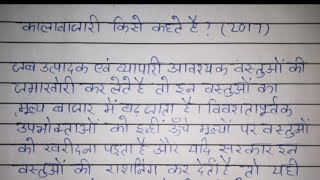 कालाबाजारी किसे कहते है? (2017)
जब उत्पादक एवं व्यापारी आवश्यक वस्तुओं की
जमाखोरी कर लेते है तो इन वस्तुओं का
मूल्य बाजार में बढ जाता है। विवशतापूर्वक
उपभोक्ताओं को इन्हीं ऊँचे मूल्यों पर वस्तुओं
को खरीदना पड़ता है और यदि सरकार इन
वस्तुओं की राशनिंग कर देती है तो यही